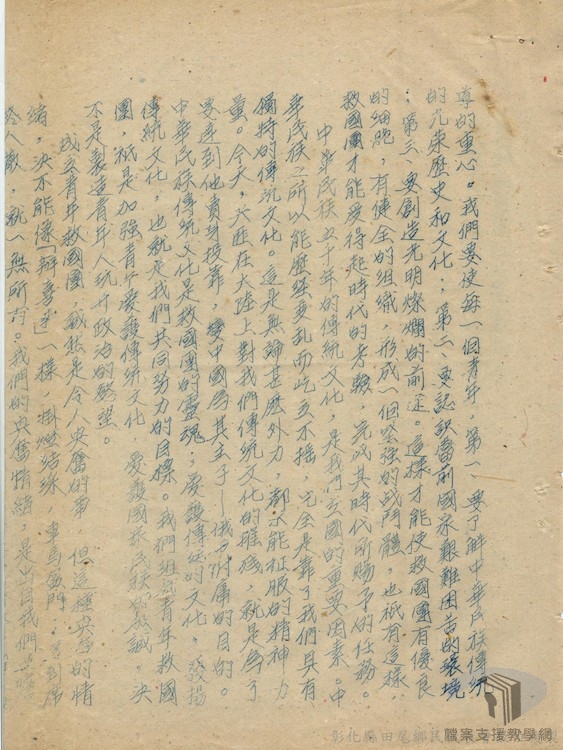 導的重心。我們要使每一個青年，第一、要了解中華民族傳統
的光榮歷史和文化；第二、要認識當前國家艱難困苦的環境
；第三、要創造光明燦爛的前途。這樣才能使救國團有優良
的細胞，有健全的組織，形成一個堅強的战鬥體，也祇有這樣，
救國團才能受得起時代的考驗，完成其時代所賜予的任務。
中華民族五千年的傳統文化，是我們立國的重要因素。中
華民族之所以能歷經变乱而屹立不搖，完全是靠了我們具有
獨特的傳統文化。這是無論甚麽外力，都不能征服的精神力
量。今天，共匪在大陸上對我們傳統文化的摧殘，就是為了
要達到他賣身投靠，變中國為其主子—俄附庸的目的。
中華民族傳統文化是救國團的靈魂；愛護傳統的文化，發揚
傳統文化，也就是我們共同努力的目標。我們組織青年救國
團，祇是加強青年愛護傳統文化，愛護國家民族的熱誠。決
不是製造青年人統什政治的慾望。
成立青年救國團，誠然是令人興奮的事，但這種興奮的情
緒，決不能像「辦喜事」一樣，掛燈結綵，車馬盈門，到席
終人散，就一無所有。我們的興奮情緒，是出自我們
彰化縣田尾鄉民
檔案支援教學網